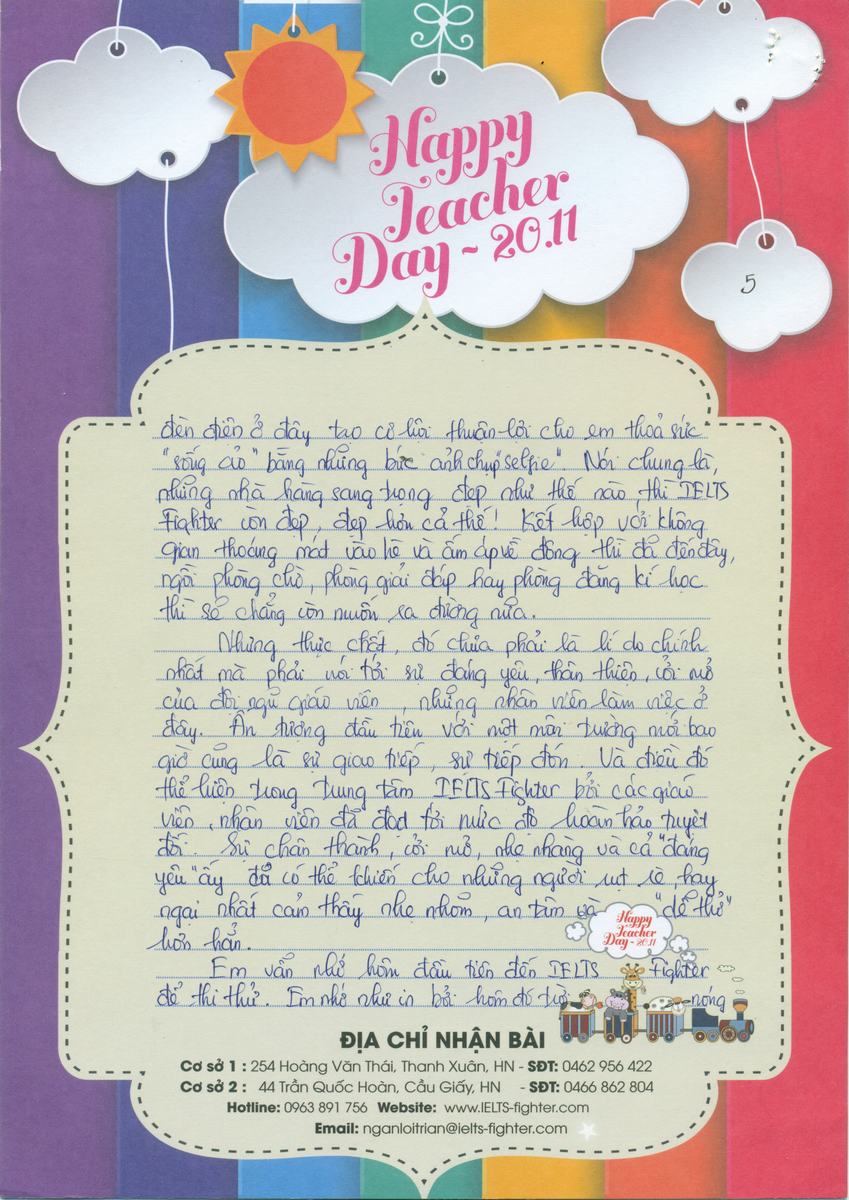 Happy
Teacher
Day ~ 20.11
5
đèn điện ở đây tạo cơ hội thuận lợi cho em thoả sức
"sống ảo" bằng những bức ảnh chụp "selfie". Nói chung là,
những nhà hàng sang trọng đẹp như thế nào thì IELTS
Fighter còn đẹp, đẹp hơn cả thế! Kết hợp với không
gian thoáng mát vào hè và ấm áp về đông thì đã đến đây,
ngồi phòng chờ, phòng giải đáp hay phòng đăng kí học
thì sẽ chẳng còn muốn ra đường nữa.
Nhưng thực chất, đó chưa phải là lí do chính
nhất mà phải nói tới sự đáng yêu, thân thiện, cởi mở
của đội ngũ giáo viên, những nhân viên làm việc ở
đây. Ấn tượng đầu tiên với một môi trường mới bao
giờ cũng là sự giao tiếp, sự tiếp đón. Và điều đó
thể hiện trong trung tâm IELTS Fighter bởi các giáo
viên, nhân viên đã đạt tới mức độ hoàn hảo tuyệt
đối. Sự chân thành, cởi mở, nhẹ nhàng và cả "đáng
yêu" ấy đã có thể khiến cho những người rụt rè, hay
ngại nhất cảm thấy nhẹ nhõm, an tâm và "dễ thở"
hơn hẳn.
Happy
Teacher
Day ~ 20.11
Em vẫn nhớ hôm đầu tiên đến IELTS Fighter
để thi thử. Em nhớ như in bởi hôm đó trời nóng
ĐỊA CHỈ NHẬN BÀI
Cơ sở 1 : 254 Hoàng Văn Thái, Thanh Xuân, HN - SĐT: 0462 956 422
Cơ sở 2 : 44 Trần Quốc Hoàn, Cầu Giấy, HN - SĐT: 0466 862 804
Hotline: 0963 891 756 Website: www.IELTS-fighter.com
Email: nganloitrian@ielts-fighter.com